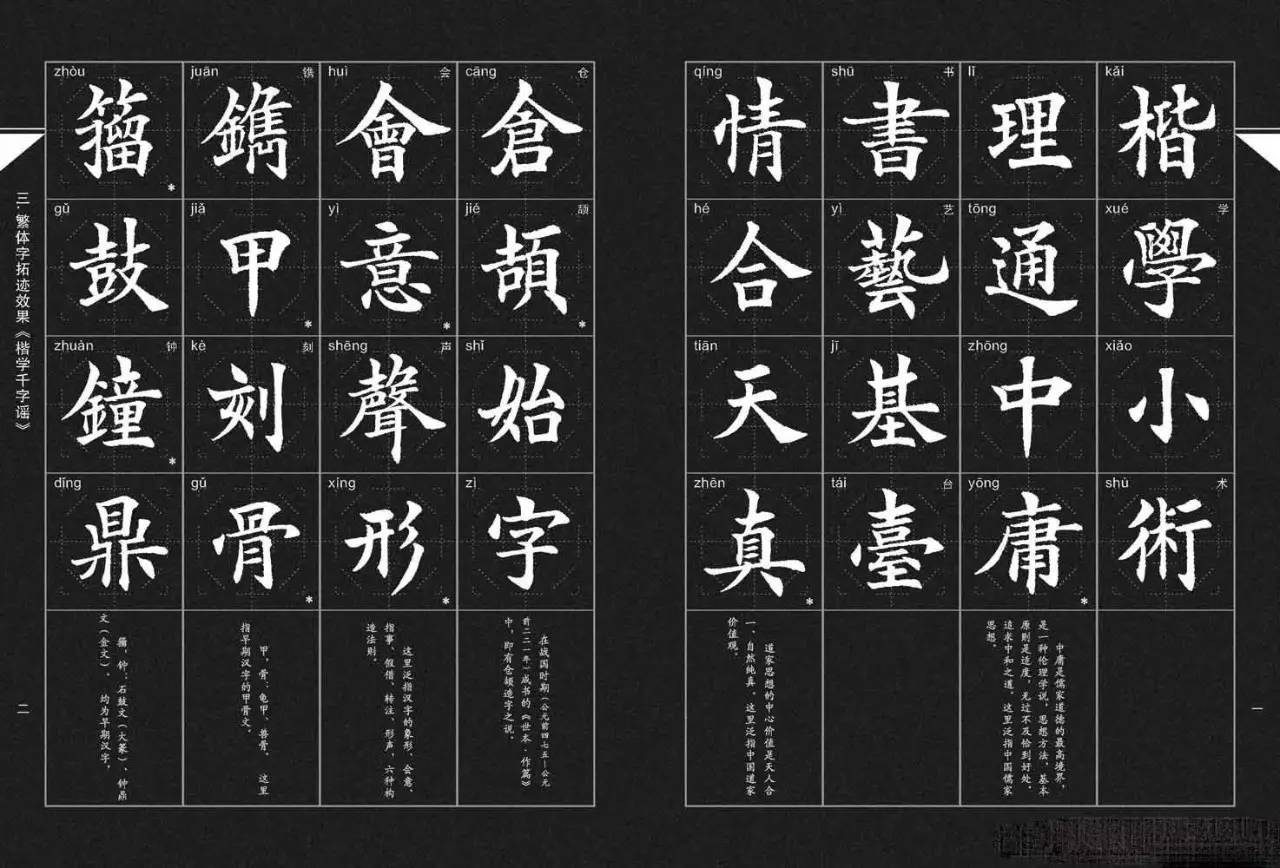 kǎi 楷
xué 学 學
xiǎo 小
shù 术 術
lǐ 理
tōng 通
zhōng 中
yōng 庸*
中庸是儒家道德的最高境界，
是一种伦理学说、思想方法，基本
原则是适度，无过不及恰到好处。
追求中和之道。这里泛指中国儒家
思想。
shū 书 書
yì 艺 藝
jī 基
tái 台 臺
qíng 情
hé 合
tiān 天
zhēn 真*
道家思想的中心价值是天人合
一、自然纯真。这里泛指中国道家
价值观。
一
cāng 仓 倉
jié 颉 頡*
shǐ 始
zì 字
在战国时期（公元前四七五—公元
前二二一年）成书的《世本·作篇》
中，即有仓颉造字之说。
huì 会 會
yì 意*
shēng 声 聲
xíng 形*
这里泛指汉字的象形、会意、
指事、假借、转注、形声，六种构
造法则。
juān 镌 鐫
jiǎ 甲*
kè 刻 刻
gǔ 骨*
甲、骨：龟甲、兽骨。这里
指早期汉字的甲骨文。
zhòu 籀*
gǔ 鼓
zhuàn 钟 鐘*
dǐng 鼎
籀，钟：石鼓文（大篆）、钟鼎
文（金文），均为早期汉字。
三.繁体字拓迹效果《楷学千字谣》
二